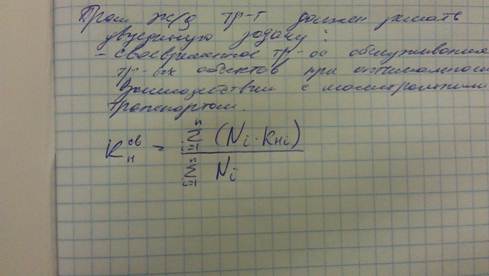 Пром ж/д тр-т должен решать
двуединую задачу:
- своевременное тр-ое обслуживание
тр-ых объектов при оптимальном
взаимодействии с магистральным
транспортом.
K_н^св = \frac{\sum_{i=1}^{n} (N_i · K_{нi})}{\sum_{i=1}^{n} N_i}